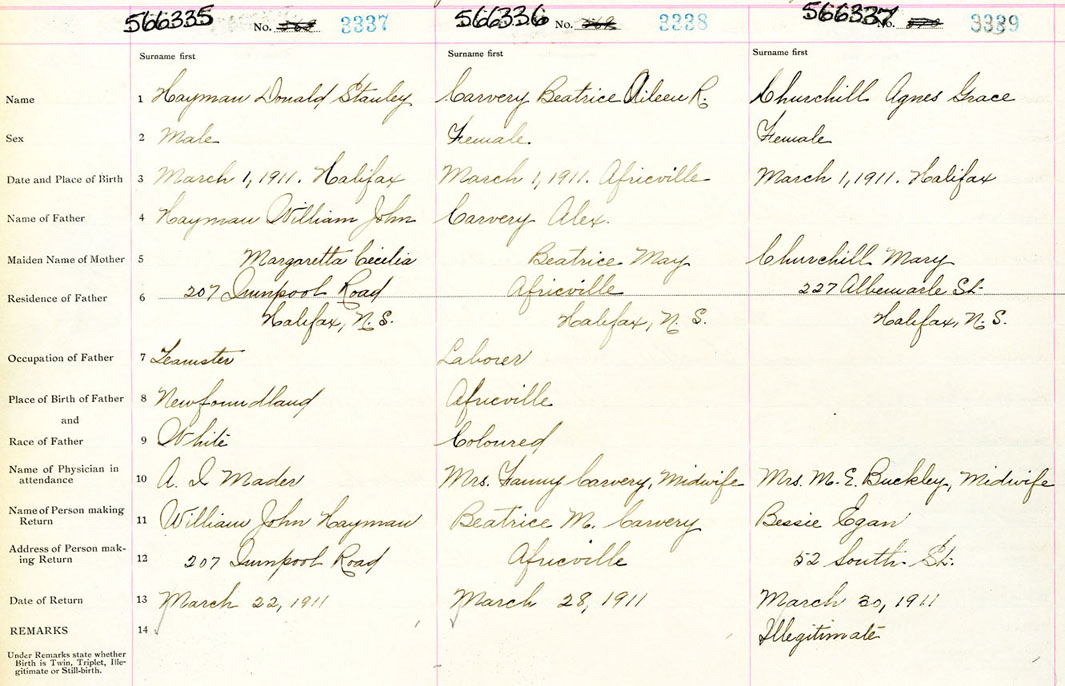 566335 No. 3337 566336 No. 3338 566337 No. 3339
Surname first Surname first Surname first
Name 1 Hayman Donald Stanley Carvery Beatrice Aileen R. Churchill Agnes Grace
Sex 2 Male Female. Female
Date and Place of Birth 3 March 1, 1911. Halifax March 1, 1911. Africville March 1, 1911. Halifax
Name of Father 4 Hayman William John Carvery Alex.
Maiden Name of Mother 5 Margaretta Cecilia Beatrice May Churchill Mary
Residence of Father 6 207 Quinpool Road Africville 227 Albemarle St.
Halifax, N. S. Halifax, N. S. Halifax, N. S.
Occupation of Father 7 Teamster Laborer
Place of Birth of Father 8 Newfoundland Africville
and
Race of Father 9 White Coloured
Name of Physician in
attendance 10 A. I. Mader Mrs. Fanny Carvery, Midwife Mrs. M. E. Buckley, Midwife
Name of Person making
Return 11 William John Hayman Beatrice M. Carvery Bessie Egan
Address of Person mak-
ing Return 12 207 Quinpool Road Africville 52 South St.
Date of Return 13 March 22, 1911 March 28, 1911 March 30, 1911
REMARKS 14 Illegitimate
Under Remarks state whether
Birth is Twin, Triplet, Ille-
gitimate or Still-birth.